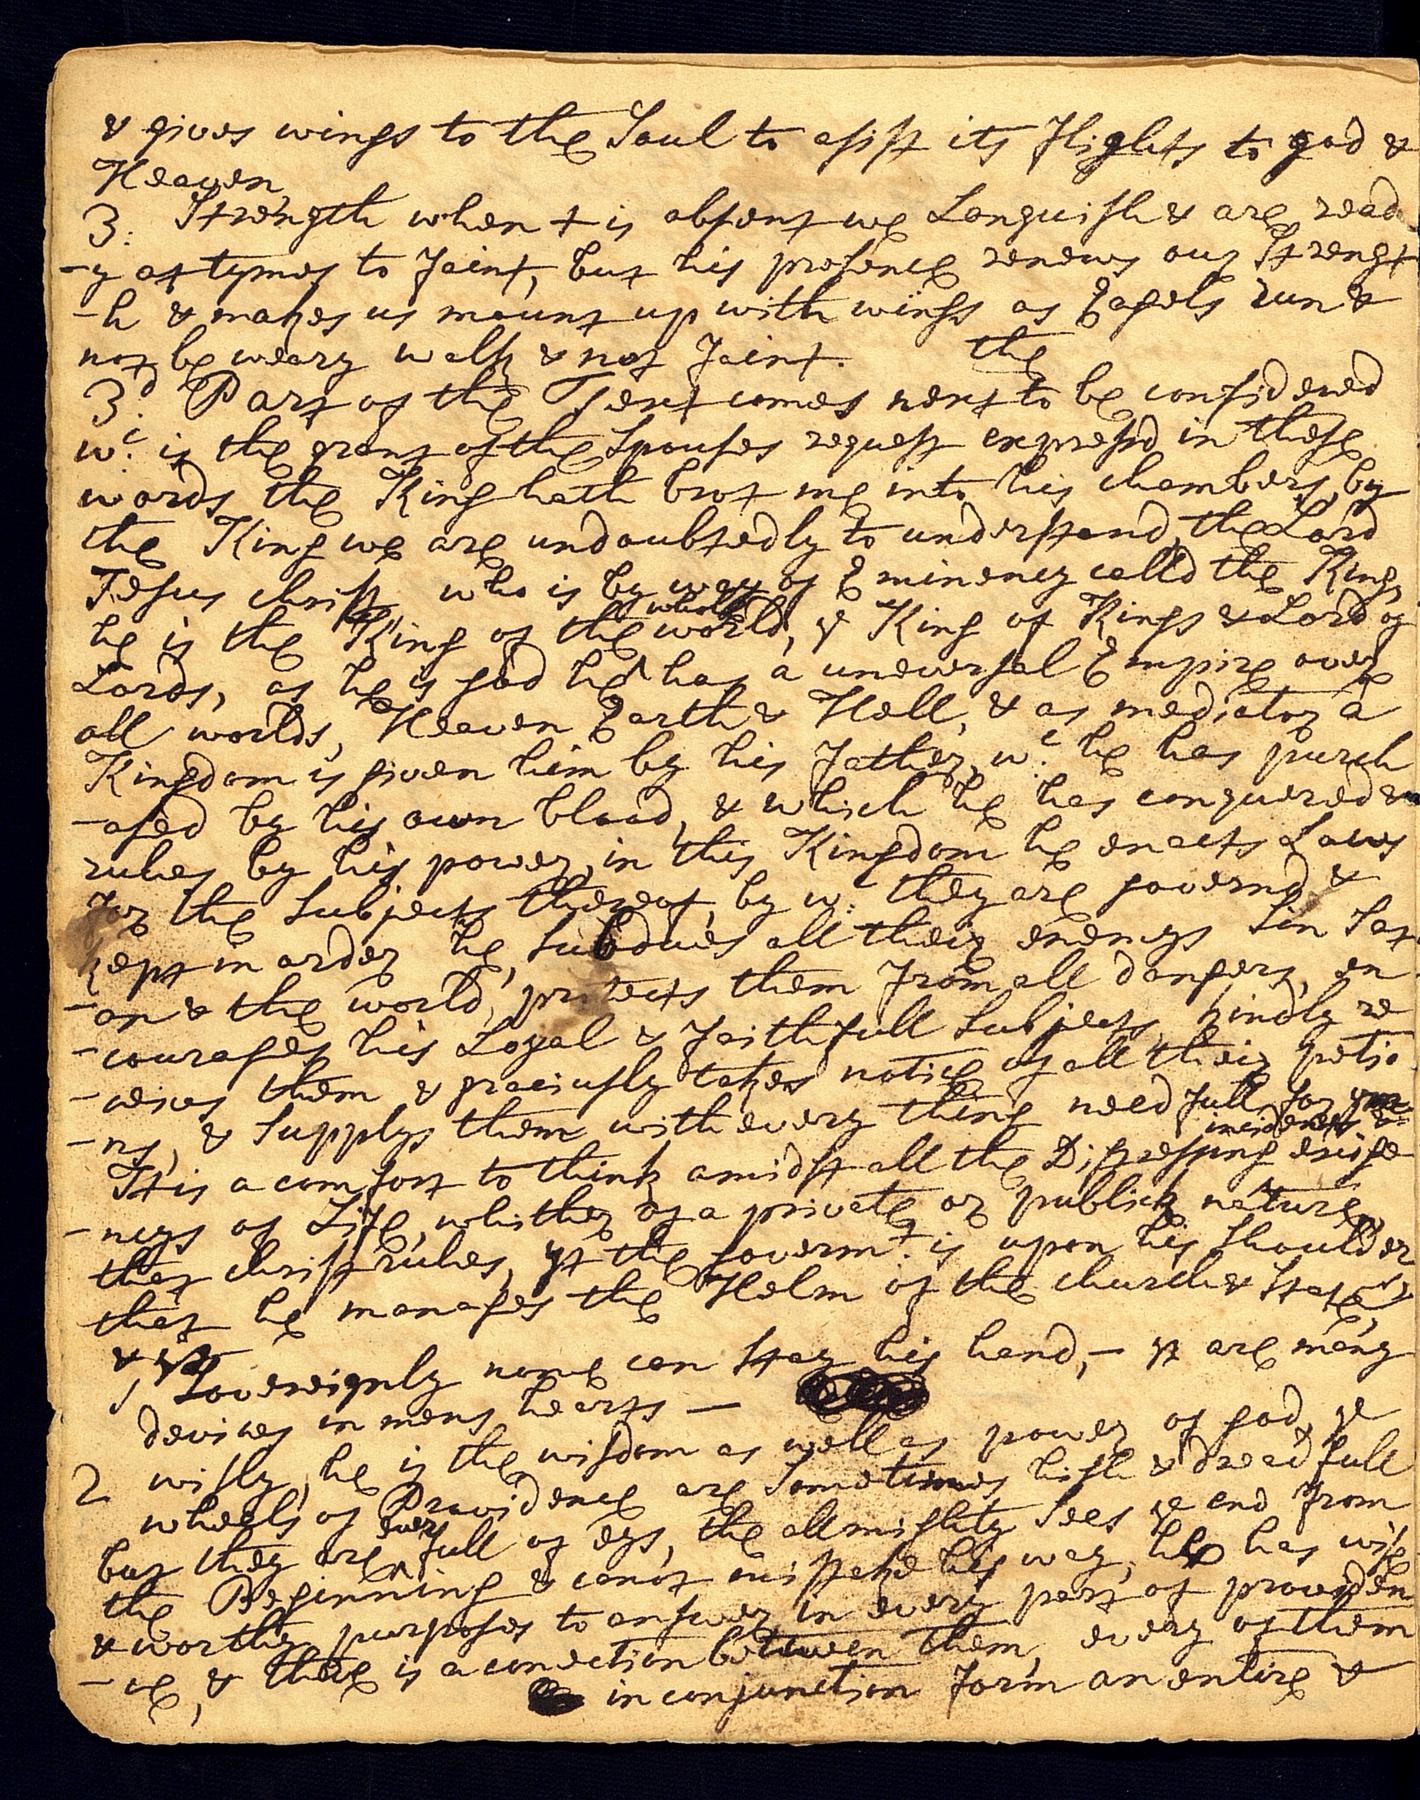 & gives wings to the Soul to assist its flights to god &
Heaven
3: Strength when t is absent we Languish & are read
-y at tymes to faint, but his presence renews our Strengt
-h & makes us mount up with wings as Eagels run &
not be weary walk & not faint. the
3d. Part of the Text comes next to be considered
wc. is the grant of the Spouses request expressd in these
words the King hath brot me into his chambers, by
the King we are undoubtedly to understand, the Lord
Jesus christ, who is by way of Eminency calld the King,
he is the King of the whole world, ye King of Kings & Lord of
Lords, as he is god he has a uneversal Empire over
all worlds, Heaven Earth & Hell, & as mediator a
Kingdom is given him by his father, wc. he has purch
-ased by his own blood, & which he has conquered &
rules by his power, in this Kingdom he enacts Laws
for the Subjects thereof, by w: they are governd &
kept in order he, Subdues all their enemys Sin Sat
-an & the world, protects them from all dangers, en
-courages his Loyal & faithfull Subjects, kindly re
-ceives them & graciusly takes notice of all their petio
-ns, & Supplys them with every thing needfull for ym
It is a comfort to think amidst all the Distressing incidents & exige
-ncys of Life, whither of a private or publick nature,
that christ rules, yt the govermt. is upon his Shoulder,
that he manages the Helm of the church & State,
& yt
1 Sovereignly none can Stay his hand, – yr are many
devices in mens hearts –
2 wisly, he is the wisdom as well as power of god, ye
wheels of Providence are Sometimes high & dreadfull
but they are every full of eys, the allmighty Sees ye end from
the Beginning & canot mistake his way, he has wise
& worthy purposes to answer in every part of providen
-ce, & there is a conection between them, every of them
in conjunction form an entire &